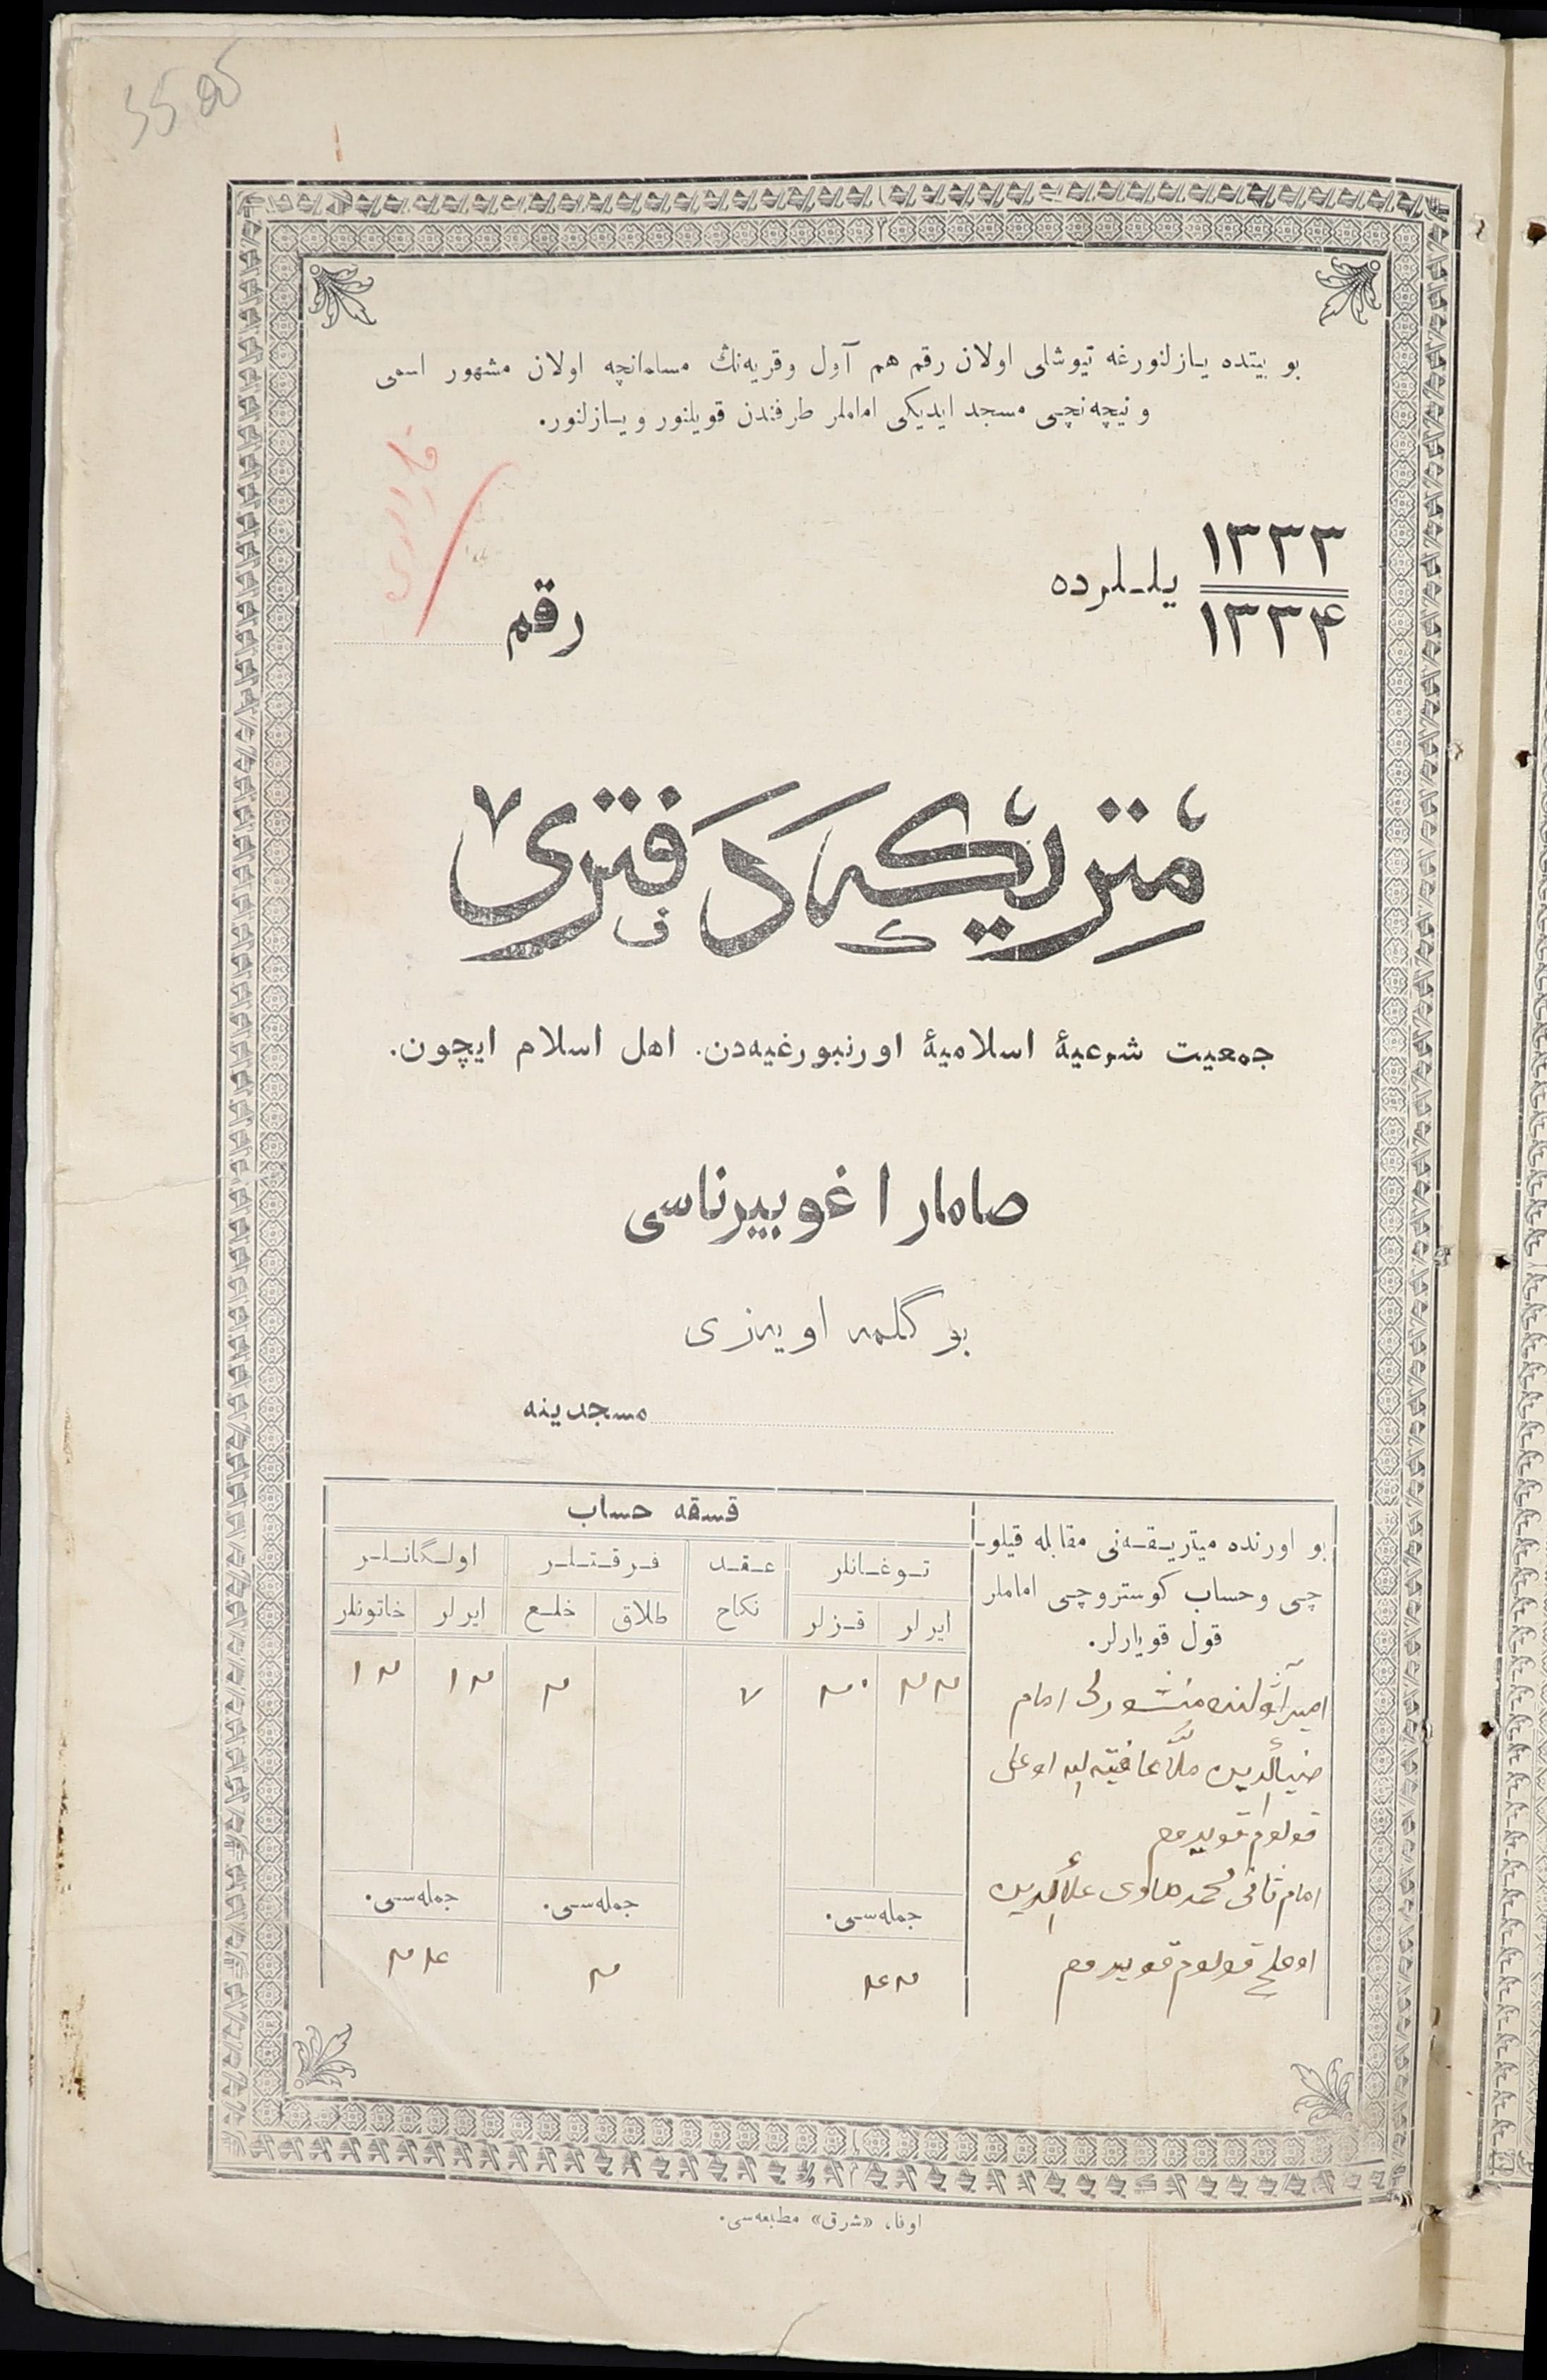 بو بیتده یازلنورغه تیوشلی اولان رقم هم آول وقریه‌نڭ مسلمانچه اولان مشهور اسمی
و نیچه‌نچی مسجد ایدیکی اماملر طرفندن قویلنور و یازلنور.
١٣٣٣
١٣٣۴
یللرده
رقم
مَتریکه دَفتری
جمعیت شرعیهٔ اسلامیهٔ اورنبورغیه‌دن. اهل اسلام ایچون.
صامارا غوبیرناسی
بوگلمه اویه‌زی
مسجدینه
بو اورنده میتریقه‌نی مقابله قیلو-
چی وحساب کوستروچی اماملر
قول قویارلر.
امام
ضیاالدین ملا اوغلی
قولوم قویدم
امام ثانی محمدهادی علاالدین
اوغلی قولوم قویدم
قسقه حساب
توغانلر
عقد
نکاح
فرقتلر
اولگانلر
ایرلر
قزلر
طلاق
خلع
ایرلر
خاتونلر
٧
جمله‌سی.
جمله‌سی.
جمله‌سی.
اوفا، «شرق» مطبعه‌سی.